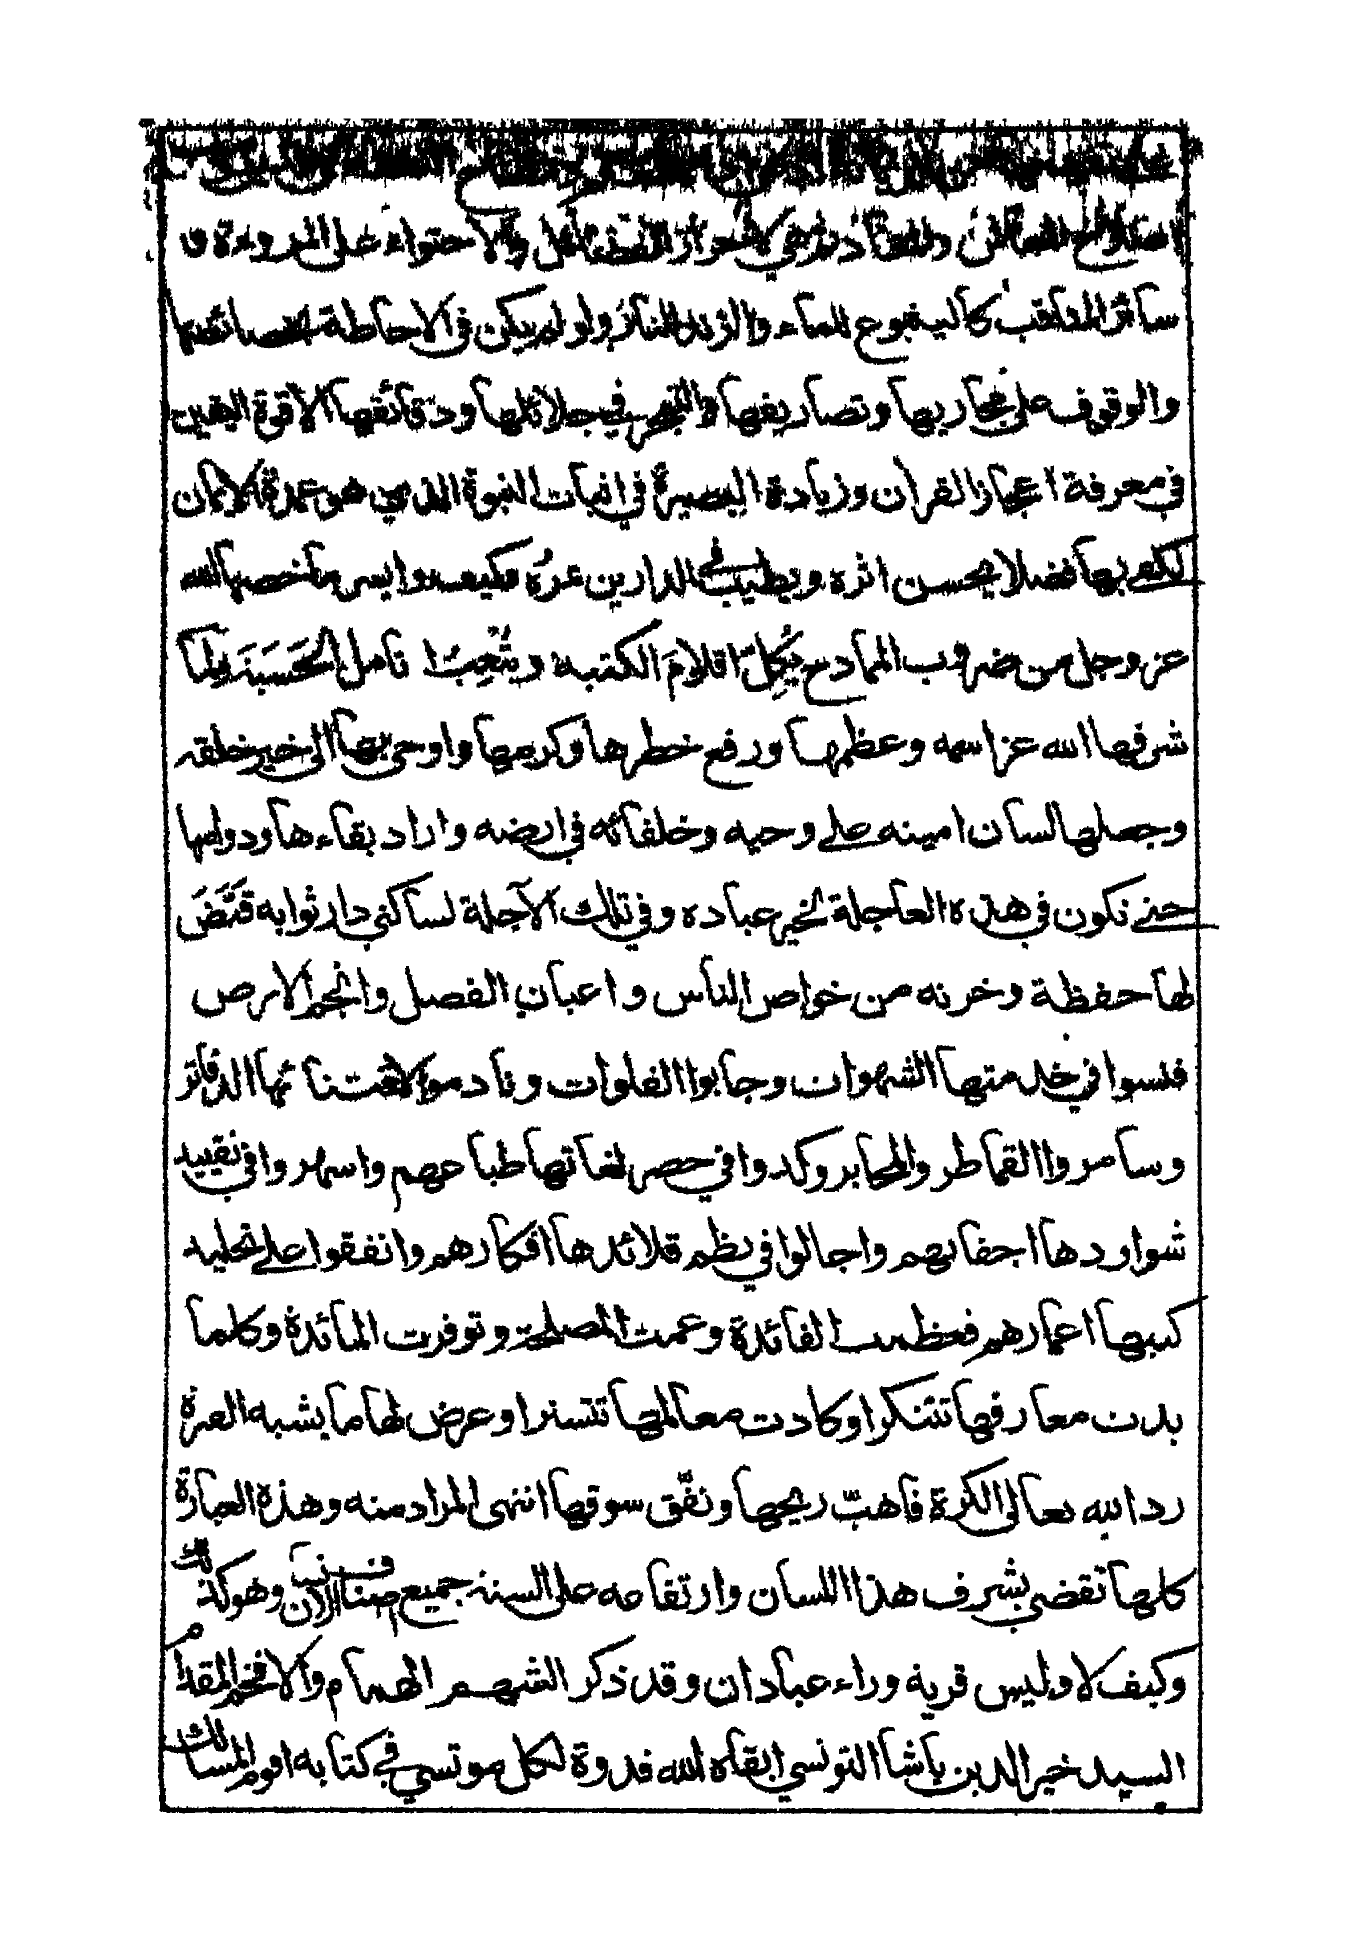 اصلاح المعاش والمعاد ثم هي لاحراز الفضائل والاحتواء على المروءة و
سائر المناقب كالينبوع للماء والزند للنار ولو لم يكن في الاحاطة بخصائصها
والوقوف على مجاريها وتصاريفها والتبحر في جلائلها ودقائقها الا قوة اليقين
في معرفة اعجاز القران وزيادة البصيرة في اثبات النبوة الذي هو عمدة الايمان
لكفى بها فضلا يحسن اثره ويطيب في الدارين غره فكيف وايسر ما خصها الله
عز وجل من ضروب الممادح يُكِلّ اقلامَ الكتبه ويُتْعِبُ انامل الحَسَبَة ولما
شرفها الله عز اسمه وعظمها ورفع خطرها وكرمها واوحى بها الى خير خلقه
وجعلها لسان امينه على وحيه وخلفائه في ارضه واراد بقاءها ودوامها
حتى تكون في هذه العاجلة لخير عباده وفي تلك الآجلة لساكني دار ثوابه قَيَّضَ
لها حفظة وخزنه من خواص الناس واعيان الفضل وانجم الارض
فنسوا في خدمتها الشهوات وجابوا الفلوات ونادموا لاقتنائها الدفاتر
وسامروا القماطر والمحابر وكدوا في حصر لغاتها طباعهم واسهروا في تقييد
شواردها اجفانهم واجالوا في نظم قلائدها افكارهم وانفقوا على تخليد
كتبها اعمارهم فعظمت الفائدة وعمت المصلحة وتوفرت المائدة وكلما
بدت معارفها تتنكر اوكادت معالمها تتستر اوعرض لها ما يشبه الفترة
رد الله تعالى الكرة فاهبّ ريحها ونفّق سوقها انتهى المراد منه وهذه العبارة
كلها تقضى بشرف هذا اللسان وارتفاعه على السنة جميع اصناف الانسان وهو كذلك
وكيف لا وليس قرية وراء عبادان وقد ذكر الشهم الهمام والافخم المقدام
السيد خير الدين باشا التونسي ابقاه الله قدوة لكل موتسي في كتابه اقوم المسالك